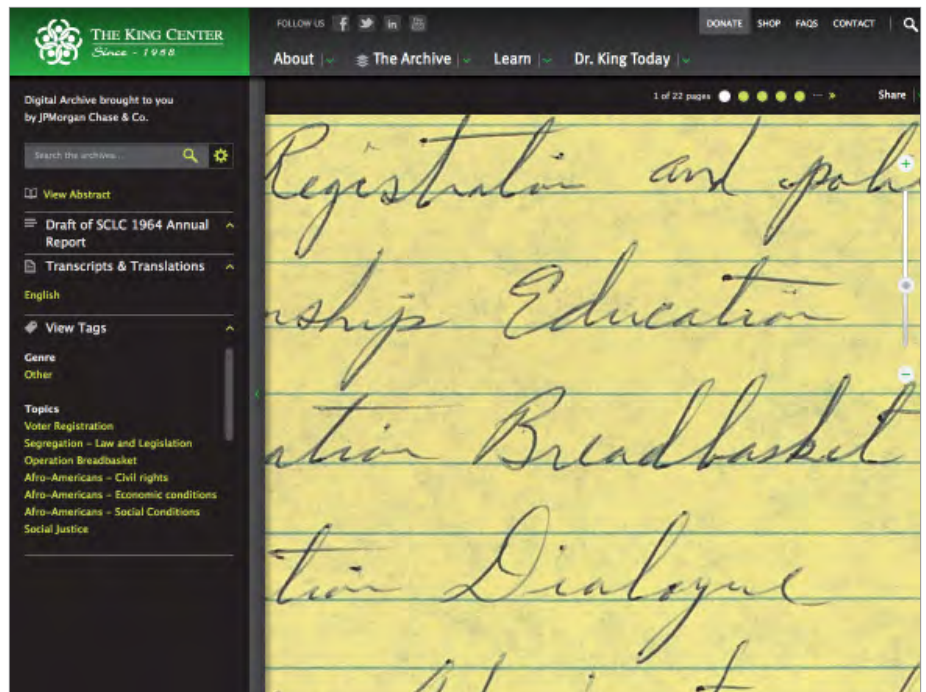 THE KING CENTER
Since - 1968
FOLLOW US
DONATE SHOP FAQS CONTACT
About The Archive Learn Dr. King Today
Digital Archive brought to you
by JPMorgan Chase & Co.
1 of 22 pages
Share
Search the archives...
View Abstract
Draft of SCLC 1964 Annual
Report
Transcripts & Translations
English
View Tags
Genre
Other
Topics
Voter Registration
Segregation – Law and Legislation
Operation Breadbasket
Afro-Americans – Civil rights
Afro-Americans – Economic conditions
Afro-Americans – Social Conditions
Social Justice
Registration and pol
nship Education
ation Breadbasket
tion Dialogue